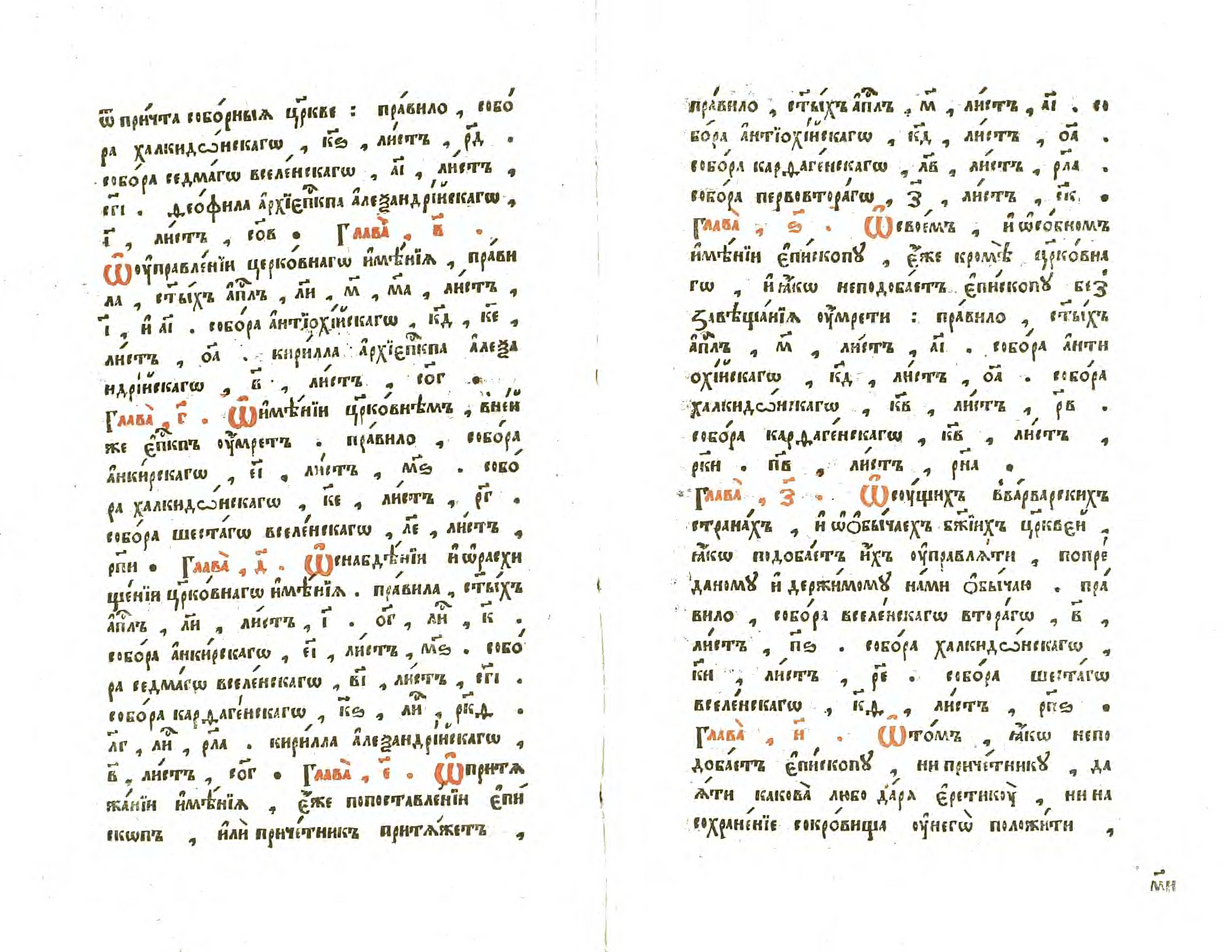 ѿ при́чта собо́рныѧ цр҃кве : пра́вило , собо́
ра халкидѡ́нскагѡ , к҃ѕ , ли́стъ , р҃д .
собо́ра седма́гѡ вселе́нскагѡ , а҃і , ли́стъ ,
с҃гі . ѳео́фила а҆рхїепⷭ҇кпа а҆леѯандрі́йскагѡ ,
г҃ , ли́стъ , с҃ов . Глава̀ , в҃ .
Ѡ҆ оу҆правле́нїи церко́внагѡ и҆мѣ́нїѧ , пра́ви
ла , ст҃ы́хъ а҆пⷭ҇лъ , л҃и , м҃ , м҃а , ли́стъ ,
і҃ , и҆ а҃і . собо́ра а҆нтїохі́йскагѡ , к҃д , к҃е ,
ли́стъ , о҃а . кири́лла а҆рхїепⷭ҇кпа а҆леѯа
ндрі́йскагѡ , в҃ , ли́стъ , с҃ог .
Глава̀ , г҃ . Ѡ҆ и҆мѣ́нїи цр҃ко́внѣмъ , в не́й
же е҆пⷭ҇кпъ оу҆́мретъ . пра́вило , собо́ра
а҆нки́рскагѡ , є҃і , ли́стъ , м҃ѕ . собо́
ра халкидѡ́нскагѡ , к҃е , ли́стъ , р҃г .
собо́ра шеста́гѡ вселе́нскагѡ , л҃е , ли́стъ ,
р҃пи . Глава̀ , д҃ . Ѡ҆ снабдѣ́нїи и҆ ѡ҆ расхи
ще́нїи цр҃ко́внагѡ и҆мѣ́нїѧ . пра́вила , ст҃ы́хъ
а҆пⷭ҇лъ , л҃и , ли́стъ , і҃ . о҃г , лиⷭ҇ , к҃ .
собо́ра а҆нки́рскагѡ , є҃і , ли́стъ , м҃ѕ . собо́
ра седма́гѡ вселе́нскагѡ , в҃і , ли́стъ , с҃гі .
собо́ра карѳаге́нскагѡ , к҃ѕ , лиⷭ҇ , р҃кѳ .
л҃г , лиⷭ҇ , р҃ла . кири́лла а҆леѯандрі́йскагѡ ,
в҃ , ли́стъ , с҃ог . Глава̀ , є҃ . Ѡ҆ притѧ
жа́нїи и҆мѣ́нїѧ , є҆́же по поставле́нїи е҆пи́
скѡпъ , и҆лѝ приче́тникъ притѧ́жетъ ,
пра́вило , ст҃ы́хъ а҆пⷭ҇лъ , м҃ , ли́стъ , а҃і . со
бо́ра а҆нтїохі́йскагѡ , к҃д , ли́стъ , о҃а .
собо́ра карѳаге́нскагѡ , л҃в , ли́стъ , р҃ла .
собо́ра первовтора́гѡ , з҃ , ли́стъ , с҃к .
Глава̀ , ѕ҃ . Ѡ҆ свое́мъ , и҆ ѡ҆со́бномъ
и҆мѣ́нїи є҆пи́скопꙋ , є҆́же кромѣ̀ цр҃ко́вна
гѡ , и҆ ꙗ҆́кѡ неподоба́етъ є҆пи́скопꙋ без̾
завѣща́нїѧ оу҆мре́ти : пра́вило , ст҃ы́хъ
а҆пⷭ҇лъ , м҃ , ли́стъ , а҃і . собо́ра а҆нти
охі́йскагѡ , к҃д , ли́стъ , о҃а . собо́ра
халкидѡ́нскагѡ , к҃в , ли́стъ , р҃в .
собо́ра карѳаге́нскагѡ , к҃в , ли́стъ ,
р҃ки . п҃в , ли́стъ , р҃на .
Глава̀ , з҃ . Ѡ҆ су́щихъ в ва́рварскихъ
страна́хъ , и҆ ѡ҆ ѻ҆бы́чаехъ бж҃їихъ цр҃кве́й ,
ꙗ҆́кѡ подоба́етъ и҆̀хъ оу҆правлѧ́ти , по пре́
даномꙋ и҆ держи́момꙋ на́ми ѻ҆бы́чаю . пра́
вило , собо́ра вселе́нскагѡ втора́гѡ , в҃ ,
ли́стъ , п҃ѕ . собо́ра халкидѡ́нскагѡ ,
к҃и , ли́стъ , р҃е . собо́ра шеста́гѡ
вселе́нскагѡ , к҃ѳ , ли́стъ , р҃пѕ .
Глава̀ , и҃ . Ѡ҆ то́мъ , ꙗ҆́кѡ непо
доба́етъ є҆пи́скопꙋ , ни приче́тникꙋ , да
ѧ҆́ти какова̀ любо да́ра є҆ретикоу̀ , ни на
сохране́нїе сокро́вища оу҆ негѡ̀ положи́ти ,
м҃и